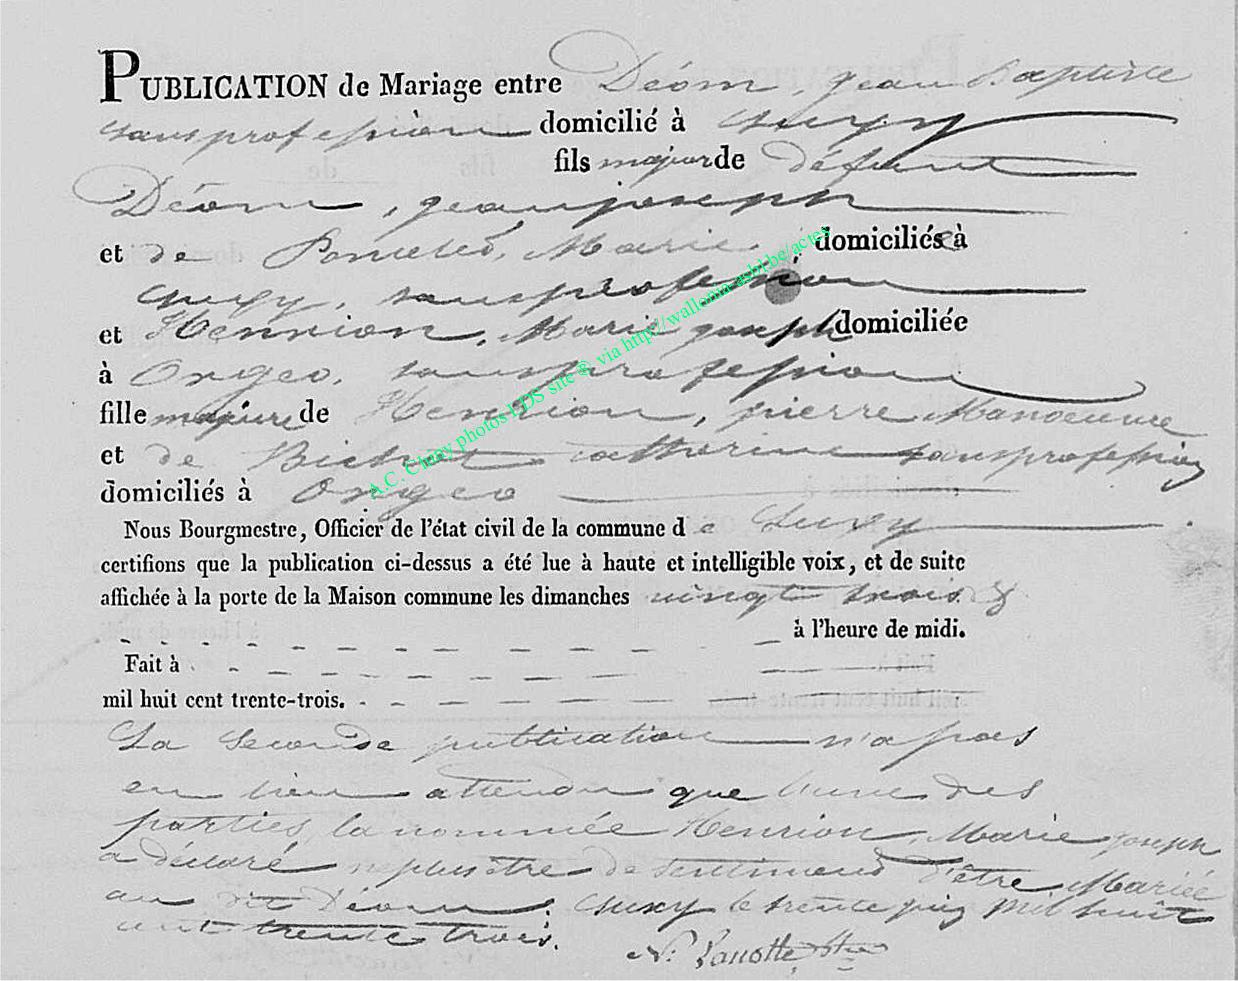 PUBLICATION de Mariage entre Déom, jean Baptiste
sans profession domicilié à Suxy
fils majeur de défunt
Déom, jean joseph
et de Poncelet, Marie, domiciliée à
Suxy, sans profession
et Henrion, Marie joseph domiciliée
à Orgeo, sans profession
fille majeure de Henrion, pierre Manoeuvre
et de Bichot catherine sans profession
domiciliés à Orgeo
Nous Bourgmestre, Officier de l'état civil de la commune de Suxy
certifions que la publication ci-dessus a été lue à haute et intelligible voix, et de suite
affichée à la porte de la Maison commune les dimanches vingt trois
à l'heure de midi.
Fait à
mil huit cent trente-trois.
La seconde publication n'a pas
eu lieu attendu que l'une des
parties, la nommée Henrion, Marie joseph
a déclaré n'plus être de sentiment d'être Mariée
au dit Déom. Suxy le trente juin mil huit
cent trente trois.
N. Lanotte
A.C. Chiny photos LDS site @ via http://wallonia.asbl.be/actes